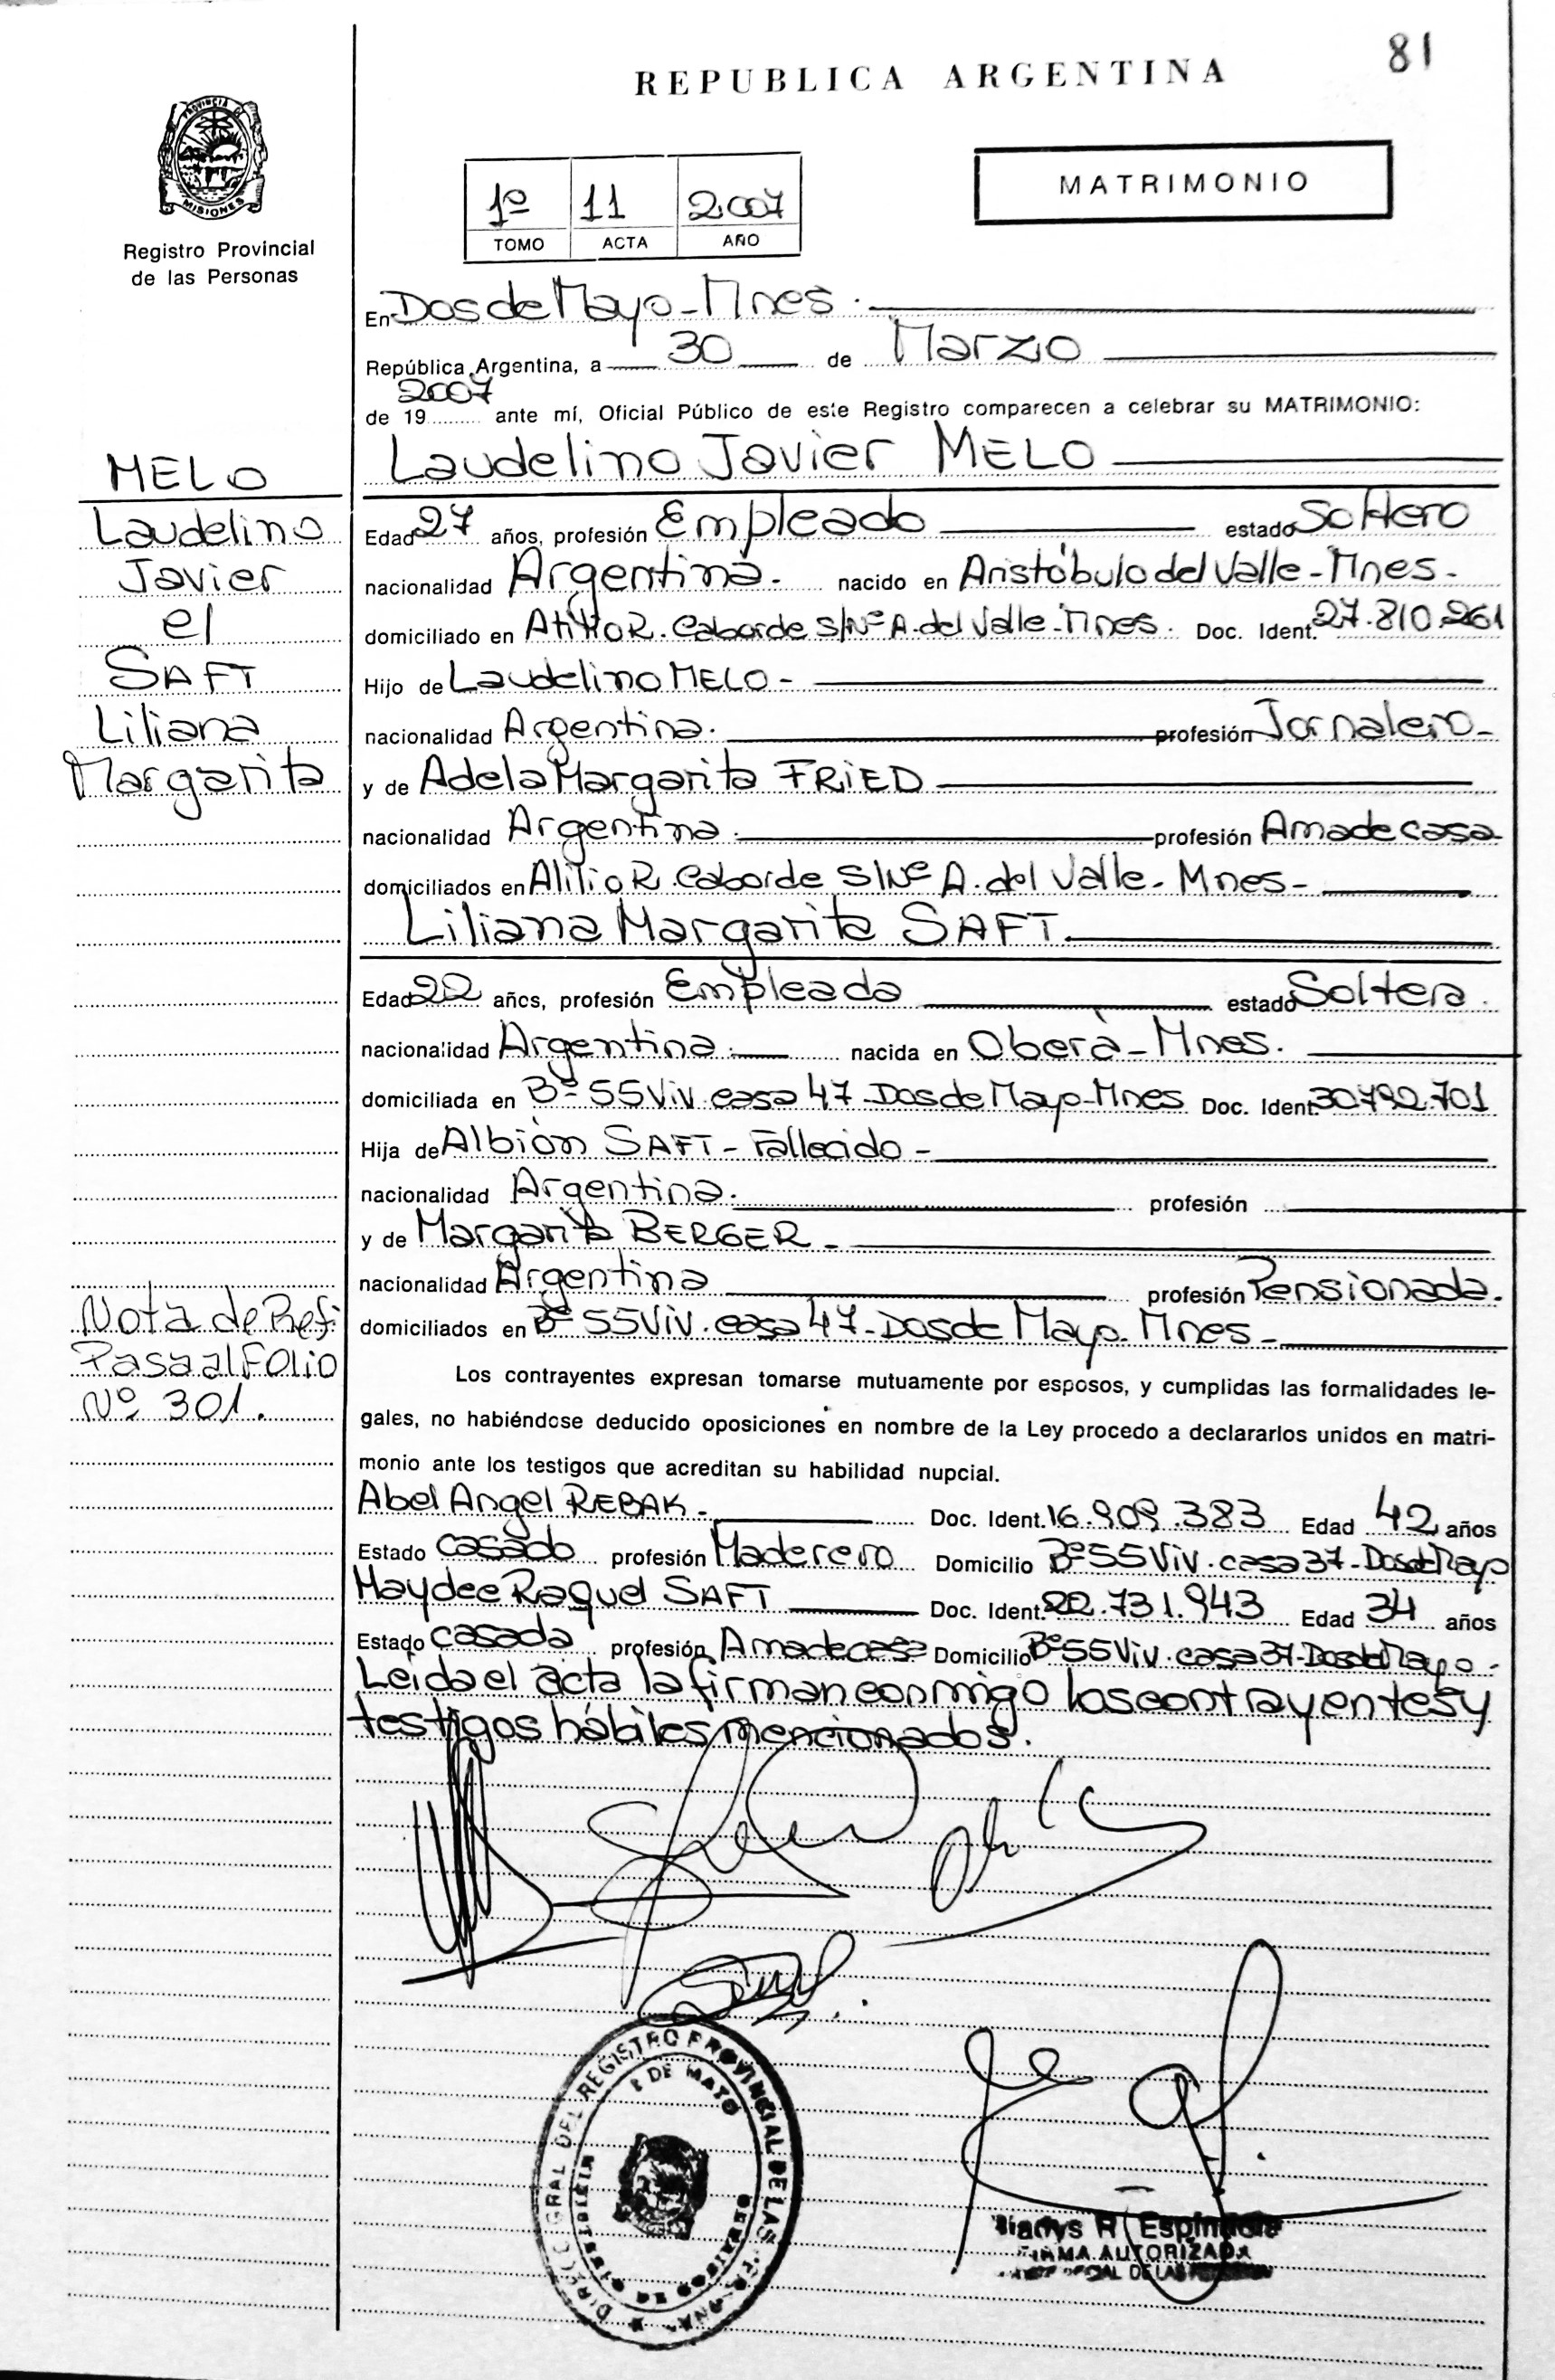 81
REPUBLICA ARGENTINA
PROVINCIA DE
MISIONES
Registro Provincial
de las Personas
1º 11 2.007
TOMO ACTA AÑO
MATRIMONIO
En Dos de Mayo - Mnes.
República Argentina, a 30 de Marzo
2007
de 19 ante mí, Oficial Público de este Registro comparecen a celebrar su MATRIMONIO:
MELO
Laudelino
Javier
el
SAFT
Liliana
Margarita
Laudelino Javier MELO
Edad 27 años, profesión Empleado estado Soltero
nacionalidad Argentina. nacido en Aristóbulo del Valle - Mnes.
domiciliado en Atilio R. Caborde S/Nº A. del Valle - Mnes. Doc. Ident. 27.810.261
Hijo de Laudelino MELO -
nacionalidad Argentina. profesión Jornalero -
y de Adela Margarita FRIED
nacionalidad Argentina. profesión Ama de casa
domiciliados en Atilio R. Caborde S/Nº A. del Valle - Mnes -
Liliana Margarita SAFT.
Edad 22 años, profesión Empleada estado Soltera.
nacionalidad Argentina. nacida en Oberà - Mnes.
domiciliada en Bº 55 Viv. casa 47 - Dos de Mayo - Mnes Doc. Ident 30.792.701
Hija de Albión SAFT - Fallecido -
nacionalidad Argentina. profesión
y de Margarita BERGER -
nacionalidad Argentina profesión Pensionada.
domiciliados en Bº 55 Viv. casa 47 - Dos de Mayo - Mnes -
Nota de Ref:
Pasa al Folio
Nº 301.
Los contrayentes expresan tomarse mutuamente por esposos, y cumplidas las formalidades le-
gales, no habiéndose deducido oposiciones en nombre de la Ley procedo a declararlos unidos en matri-
monio ante los testigos que acreditan su habilidad nupcial.
Abel Angel REBAK - Doc. Ident. 16.909.383 Edad 42 años
Estado casado profesión Maderero Domicilio Bº 55 Viv. casa 37 - Dos de Mayo
Haydee Raquel SAFT Doc. Ident. 22.731.943 Edad 34 años
Estado casada profesión Ama de casa Domicilio Bº 55 Viv. casa 37 - Dos de Mayo -
Leída el acta la firman conmigo los contrayentes y
testigos hábiles mencionados.
DIRECC. GRAL DEL REGISTRO PROVINCIAL DE LAS
DE MAYO
R. Espindola
FIRMA AUTORIZADA